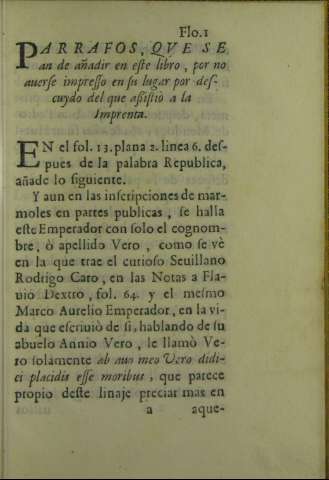 Flo.1
PARRAFOS, QVE SE
an de añadir en este libro, por no
auerse impresso en su lugar por des-
cuydo del que assistiò a la
Imprenta.
EN el fol. 13. plana 2. linea 6. des-
pues de la palabra Republica,
añade lo siguiente.
Y aun en las inscripciones de mar-
moles en partes publicas, se halla
este Emperador con solo el cognom-
bre, ò apellido Vero, como se vè
en la que trae el curioso Seuillano
Rodrigo Caro, en las Notas a Fla-
uio Dextro, fol. 64. y el mesmo
Marco Aurelio Emperador, en la vi-
da que escriuió de si, hablando de su
abuelo Annio Vero, le llamò Ve-
ro solamente ab auo meo Vero didi-
ci placidis esse moribus, que parece
propio deste linaje preciar mas en
a aque-